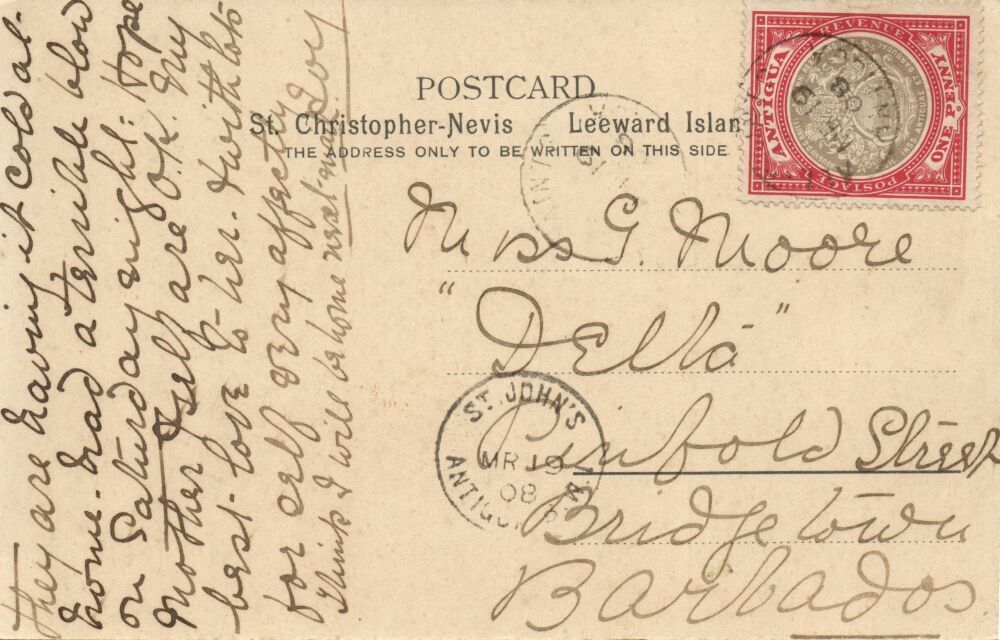 POSTCARD
St. Christopher-Nevis Leeward Islan
THE ADDRESS ONLY TO BE WRITTEN ON THIS SIDE
ANTIGUA
REVENUE
ONE PENNY
POSTAGE
Miss G. Moore
"Della"
Street
Bridgetown
Barbados
ST. JOHN'S
MR 19
08
ANTIGUA
they are having it cold at
home. had a terrible blow
on Saturday night: Hope
Mother & self are O.K. my
best love to her. & with lots
for self very affectly
Think I will be home next